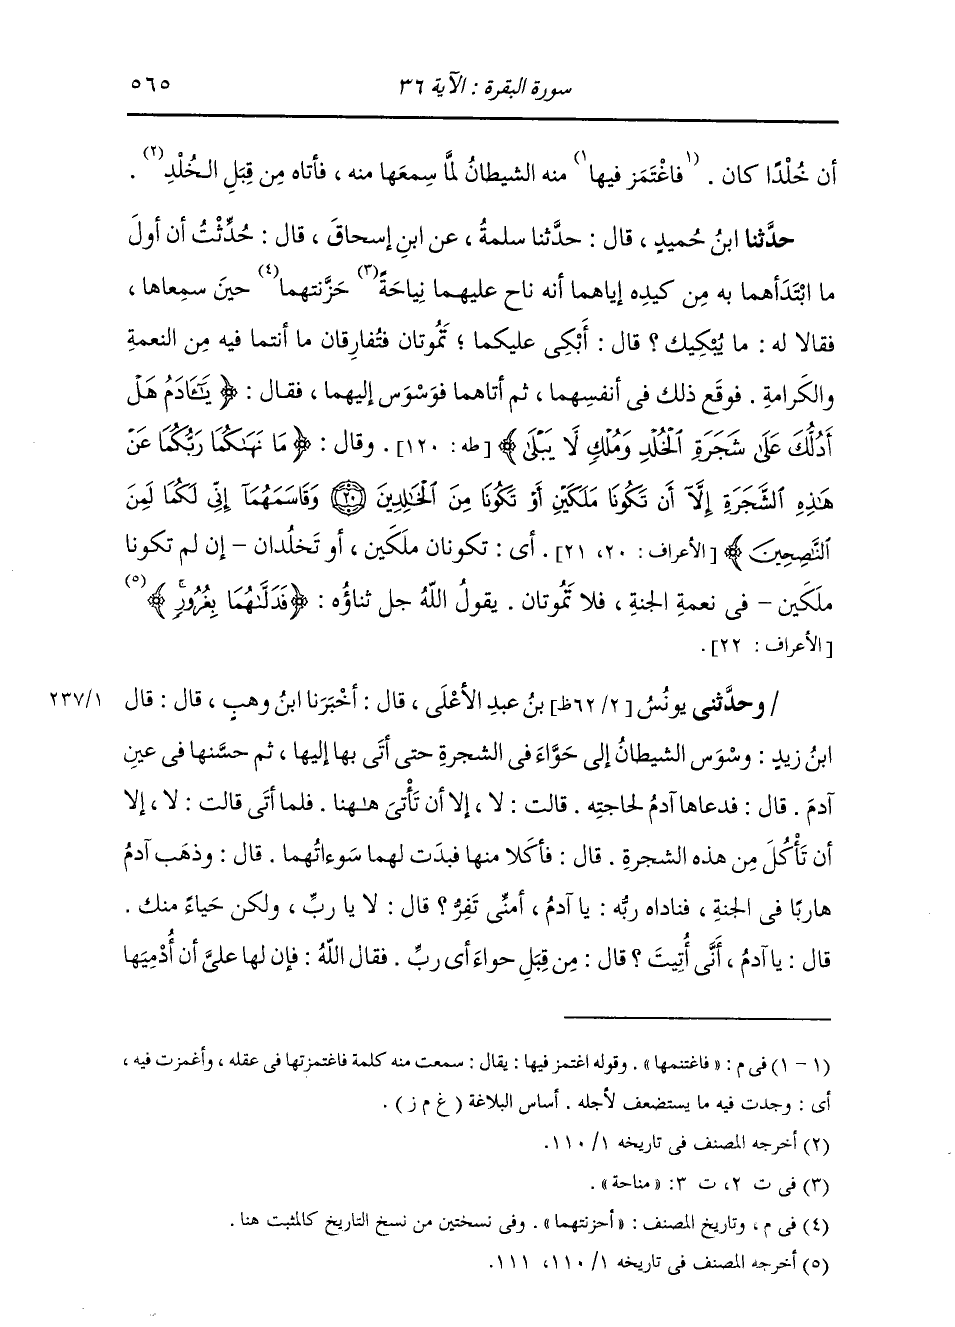 سورة البقرة : الآية ٣٦ ٥٦٥
أن خُلْدًا كان . (١ فاغْتَمَز فيها ١) منه الشيطانُ لمَّا سمِعَها منه ، فأتاه مِن قِبَلِ الخُلْدِ (٢) .
حدَّثنا ابنُ حُميدٍ ، قال : حدَّثنا سلمةُ ، عن ابنِ إسحاقَ ، قال : حُدِّثْتُ أن أولَ
ما ابْتَدَأهما به مِن كيدِه إياهما أنه ناح عليهما نِياحَةً (٣) حَزَّنتهما (٤) حينَ سمِعاها ،
فقالا له : ما يُبْكِيك ؟ قال : أَبْكِى عليكما ؛ تَمُوتان فتُفارِقان ما أنتما فيه مِن النعمةِ
والكَرامةِ . فوقَع ذلك فى أنفسِهما ، ثم أتاهما فوَسْوَس إليهما ، فقال : ﴿ يَٰٓـَٔادَمُ هَلْ
أَدُلُّكَ عَلَىٰ شَجَرَةِ ٱلْخُلْدِ وَمُلْكٍ لَّا يَبْلَىٰ ﴾ [طه: ١٢٠] . وقال : ﴿ مَا نَهَىٰكُمَا رَبُّكُمَا عَنْ
هَٰذِهِ ٱلشَّجَرَةِ إِلَّآ أَن تَكُونَا مَلَكَيْنِ أَوْ تَكُونَا مِنَ ٱلْخَٰلِدِينَ ۝٢٠ وَقَاسَمَهُمَآ إِنِّى لَكُمَا لَمِنَ
ٱلنَّٰصِحِينَ ﴾ [الأعراف: ٢٠، ٢١] . أى : تكونان ملَكَين ، أو تَخلُدان – إن لم تكونا
ملَكَين – فى نعمةِ الجنةِ ، فلا تَمُوتان . يقولُ اللَّهُ جل ثناؤُه : ﴿فَدَلَّىٰهُمَا بِغُرُورٍ ۚ﴾ (٥)
[الأعراف: ٢٢] .
/ وحدَّثنى يونُسُ [٢/ ٦٢ظ] بنُ عبدِ الأعْلَى ، قال : أخْبَرَنا ابنُ وهبٍ ، قال : قال ٢٣٧/١
ابنُ زيدٍ : وسْوَس الشيطانُ إلى حَوَّاءَ فى الشجرةِ حتى أتَى بها إليها ، ثم حسَّنها فى عينِ
آدمَ . قال : فدعاها آدمُ لحاجتِه . قالت : لا ، إلا أن تَأْتىَ هٰهنا . فلما أتَى قالت : لا ، إلا
أن تَأْكُلَ مِن هذه الشجرةِ . قال : فأكَلا منها فبدَت لهما سَوءاتُهما . قال : وذهَب آدمُ
هاربًا فى الجنةِ ، فناداه ربُّه : يا آدمُ ، أمنِّى تَفِرُّ ؟ قال : لا يا ربِّ ، ولكن حَياءً منك .
قال : يا آدمُ ، أَنَّى أُتِيتَ ؟ قال : مِن قِبَلِ حواءَ أى ربِّ . فقال اللَّهُ : فإن لها علىَّ أن أُدْمِيَها
(١ – ١) فى م : «فاغتنمها» . وقوله اغتمز فيها : يقال : سمعت منه كلمة فاغتمزتها فى عقله ، وأغمزت فيه ،
أى : وجدت فيه ما يستضعف لأجله . أساس البلاغة (غ م ز) .
(٢) أخرجه المصنف فى تاريخه ١/ ١١٠.
(٣) فى ت ٢، ت ٣: «مناحة» .
(٤) فى م ، وتاريخ المصنف : «أحزنتهما» . وفى نسختين من نسخ التاريخ كالمثبت هنا .
(٥) أخرجه المصنف فى تاريخه ١/ ١١٠، ١١١.